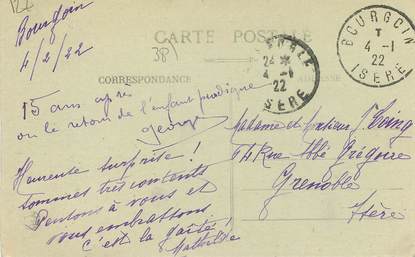 Bourgoin
4/2/22
381
CARTE POSTALE
CORRESPONDANCE
ADRESSE
BOURGOIN
T
4 -1
22
ISERE
GRENOBLE
24
4 -1
22
ISERE
15 ans après
ou le retour de l'enfant prodigue
George
Heureuse surprise !
Sommes très contents
Pensons à vous et
vous embrassons.
C'est la gaîté !
Mathilde
Madame et Monsieur
64 Rue Abbé Grégoire
Grenoble
Isère